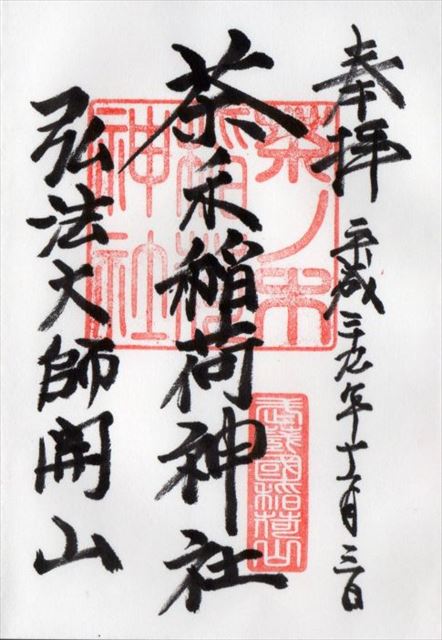 奉拝
平成二九年十二月三日
茶木稲荷神社
弘法大師開山
茶ノ木
稲荷
神社
武蔵國稲荷山